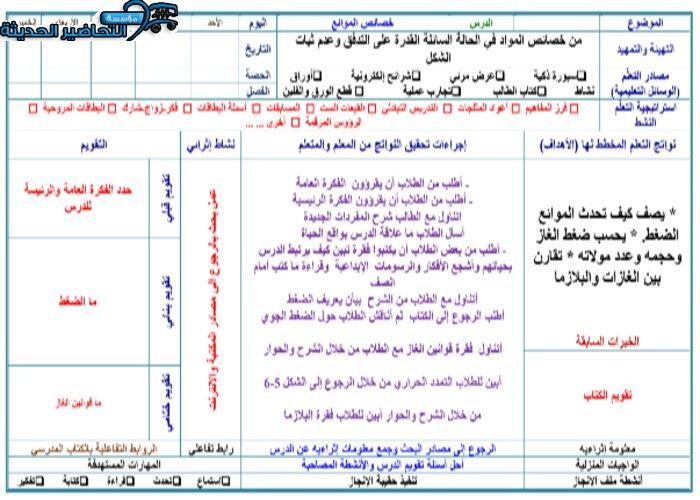 مؤسسة
التحاضير الحديثة
الموضوع
الدرس
خصائص الموائع
اليوم
الأحد
الأربعاء
التهيئة والتمهيد
من خصائص المواد في الحالة السائلة القدرة على التدفق وعدم ثبات الشكل
التاريخ
مصادر التعلم
(الوسائل التعليمية)
☐سبورة ذكية ☐عرض مرئي ☐شرائح إلكترونية ☐أوراق
نشاط ☐كتاب الطالب ☐تجارب عملية ☐ قطع الورق والفلين
الحصة
الفصل
استراتيجية التعلم
النشط
☐ فرز المفاهيم ☐ أعواد المثلجات ☐ التدريس التبادلي ☐ القبعات الست ☐ المسابقات ☐ أسئلة البطاقات ☐ فكر-زاوج-شارك ☐ البطاقات المروحية
☐ الرؤوس المرقمة ☐ أخرى ... ...
نواتج التعلم المخطط لها (الأهداف)
إجراءات تحقيق النواتج من المعلم والمتعلم
نشاط إثرائي
التقويم
* يصف كيف تحدث الموائع
الضغط. * يحسب ضغط الغاز
وحجمه وعدد مولاته * تقارن
بين الغازات والبلازما
الخبرات السابقة
تقويم الكتاب
- أطلب من الطلاب أن يقرؤون الفكرة العامة
- أطلب من الطلاب أن يقرؤون الفكرة الرئيسية
اتناول مع الطالب شرح المفردات الجديدة
أسال الطلاب ما علاقة الدرس بواقع الحياة
- أطلب من بعض الطلاب أن يكتبوا فقرة تبين كيف يرتبط الدرس
بحياتهم وأشجع الأفكار والرسومات الإبداعية وقراءة ما كتب أمام
الصف
أتناول مع الطلاب من الشرح بيأن بعريف الضغط
أطلب الرجوع إلى الكتاب ثم أناقش الطلاب حول الضغط الجوي
أتناول فقرة قوانين الغاز مع الطلاب من خلال الشرح والحوار
أبين للطلاب التمدد الحراري من خلال الرجوع إلى الشكل 5-6
من خلال الشرح والحوار أبين للطلاب فقرة البلازما
عمل بحث بالرجوع إلى مصادر المكتبة والانترنت
تقويم قبلي
حدد الفكرة العامة والرئيسة
للدرس
تقويم بنائي
ما الضغط
تقويم ختامي
ما قوانين الغاز
معلومة إثرائيه
الرجوع إلى مصادر البحث وجمع معلومات إثرائيه عن الدرس
رابط تفاعلي
الروابط التفاعلية بالكتاب المدرسي
الواجبات المنزلية
أحل أسئلة تقويم الدرس والأنشطة المصاحبة
المهارات المستهدفة
أنشطة ملف الانجاز
تنفيذ حقيبة الانجاز
☐ استماع ☐ تحدث ☐ قراءة ☐ كتابة ☐ تفكير